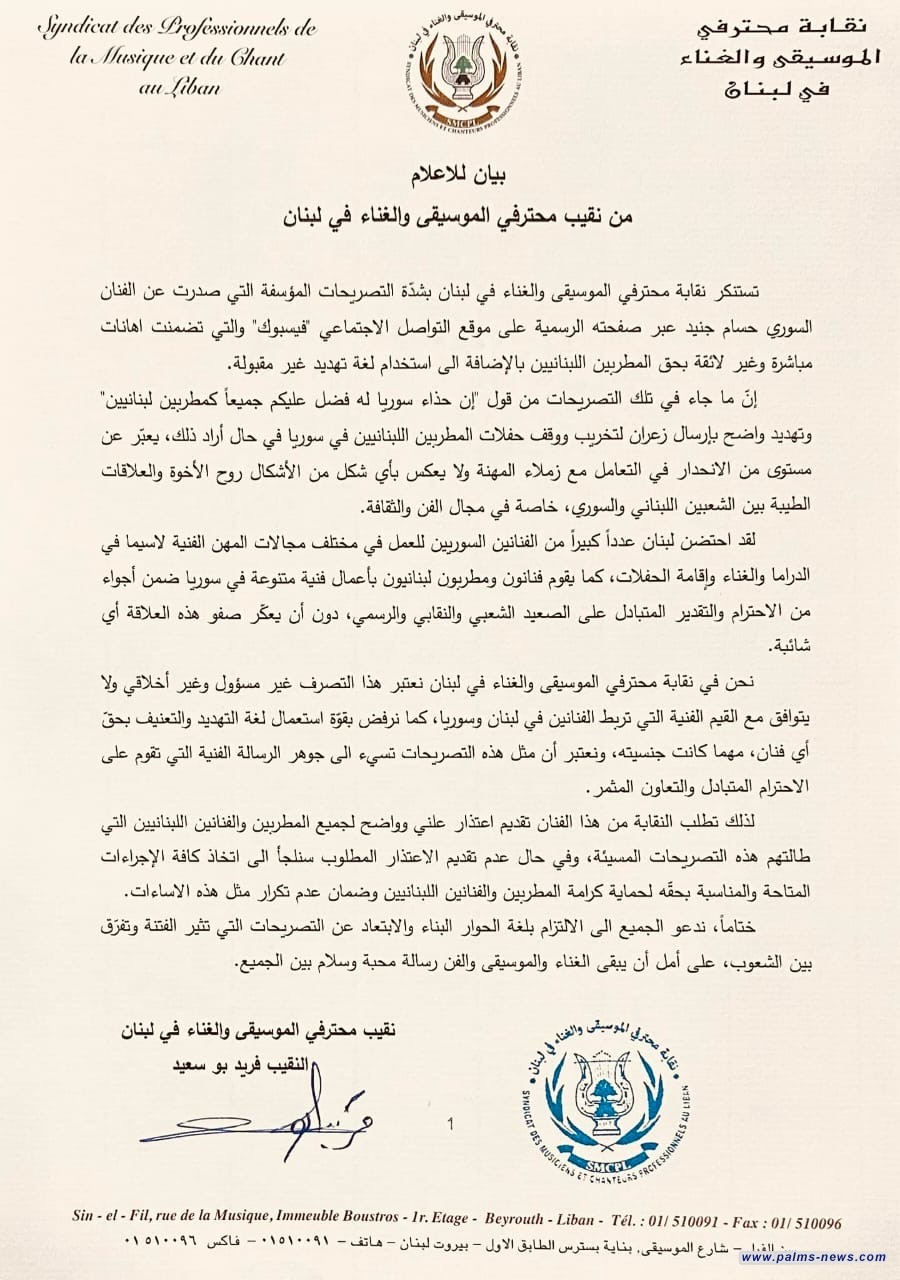 Syndicat des Professionnels de
la Musique et du Chant
au Liban
نقابة محترفي الموسيقى والغناء في لبنان
SYNDICAT DES MUSICIENS ET CHANTEURS PROFESSIONNELS AU LIBAN
SMCPL
نقابة محترفي
الموسيقى والغناء
في لبنان
بيان للاعلام
من نقيب محترفي الموسيقى والغناء في لبنان
تستنكر نقابة محترفي الموسيقى والغناء في لبنان بشدّة التصريحات المؤسفة التي صدرت عن الفنان
السوري حسام جنيد عبر صفحته الرسمية على موقع التواصل الاجتماعي "فيسبوك" والتي تضمنت اهانات
مباشرة وغير لائقة بحق المطربين اللبنانيين بالإضافة الى استخدام لغة تهديد غير مقبولة.
إنّ ما جاء في تلك التصريحات من قول "إن حذاء سوريا له فضل عليكم جميعاً كمطربين لبنانيين"
وتهديد واضح بإرسال زعران لتخريب ووقف حفلات المطربين اللبنانيين في سوريا في حال أراد ذلك، يعبّر عن
مستوى من الانحدار في التعامل مع زملاء المهنة ولا يعكس بأي شكل من الأشكال روح الأخوة والعلاقات
الطيبة بين الشعبين اللبناني والسوري، خاصة في مجال الفن والثقافة.
لقد احتضن لبنان عدداً كبيراً من الفنانين السوريين للعمل في مختلف مجالات المهن الفنية لاسيما في
الدراما والغناء وإقامة الحفلات، كما يقوم فنانون ومطربون لبنانيون بأعمال فنية متنوعة في سوريا ضمن أجواء
من الاحترام والتقدير المتبادل على الصعيد الشعبي والنقابي والرسمي، دون أن يعكّر صفو هذه العلاقة أي
شائبة.
نحن في نقابة محترفي الموسيقى والغناء في لبنان نعتبر هذا التصرف غير مسؤول وغير أخلاقي ولا
يتوافق مع القيم الفنية التي تربط الفنانين في لبنان وسوريا، كما نرفض بقوّة استعمال لغة التهديد والتعنيف بحقّ
أي فنان، مهما كانت جنسيته، ونعتبر أن مثل هذه التصريحات تسيء الى جوهر الرسالة الفنية التي تقوم على
الاحترام المتبادل والتعاون المثمر.
لذلك تطلب النقابة من هذا الفنان تقديم اعتذار علني وواضح لجميع المطربين والفنانين اللبنانيين التي
طالتهم هذه التصريحات المسيئة، وفي حال عدم تقديم الاعتذار المطلوب سنلجأ الى اتخاذ كافة الإجراءات
المتاحة والمناسبة بحقّه لحماية كرامة المطربين والفنانين اللبنانيين وضمان عدم تكرار مثل هذه الاساءات.
ختاماً، ندعو الجميع الى الالتزام بلغة الحوار البناء والابتعاد عن التصريحات التي تثير الفتنة وتفرّق
بين الشعوب، على أمل أن يبقى الغناء والموسيقى والفن رسالة محبة وسلام بين الجميع.
نقيب محترفي الموسيقى والغناء في لبنان
النقيب فريد بو سعيد
نقابة محترفي الموسيقى والغناء في لبنان
SYNDICAT DES MUSICIENS ET CHANTEURS PROFESSIONNELS AU LIBAN
SMCPL
1
Sin - el - Fil, rue de la Musique, Immeuble Boustros - 1r. Etage - Beyrouth - Liban - Tél. : 01/ 510091 - Fax : 01/ 510096
– شارع الموسيقى, بناية بسترس الطابق الاول – بيروت لبنان – هاتف – ٠١٥١٠٠٩١ – فاكس ٠١٥١٠٠٩٦
www.palms-news.com